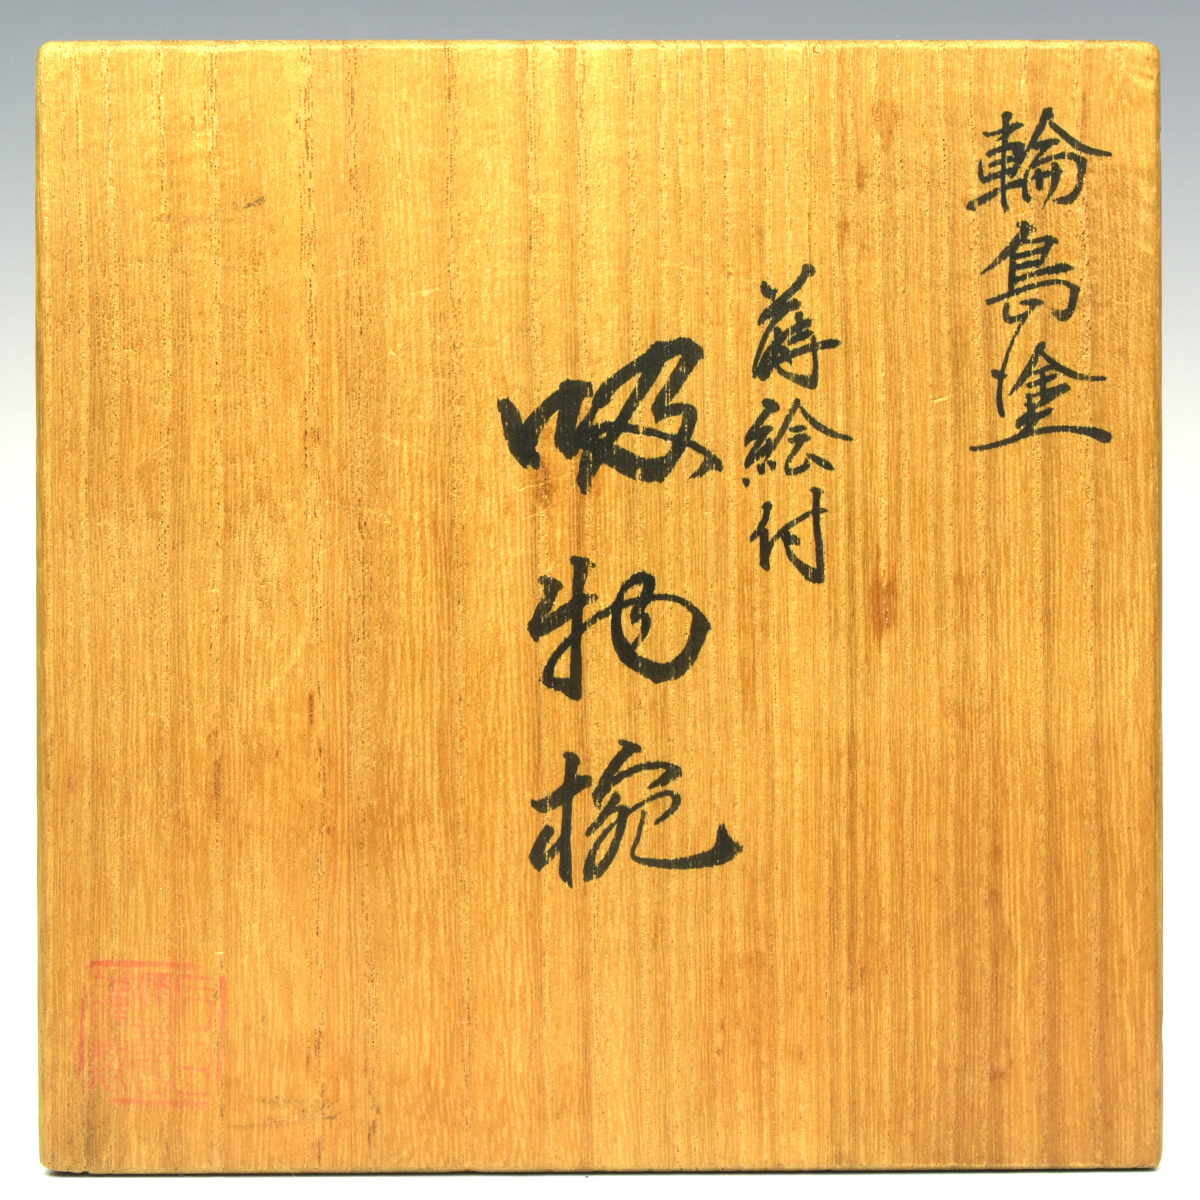 輪島塗
蒔絵付
吸物椀